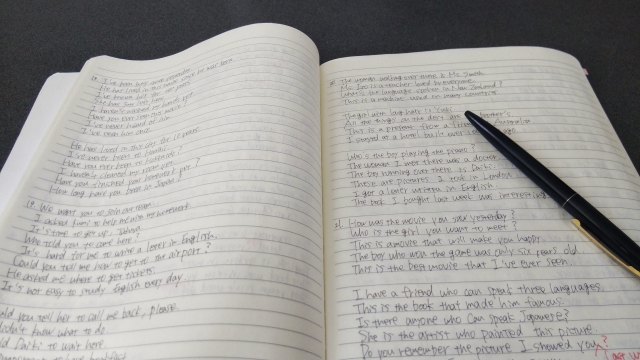 I've been busy since yesterday.
He has lived in this house since he was born.
I've never
She has just
I haven't washed my hands yet.
Have you ever seen this movie?
I've never heard of him.
I've never been there.
He has lived in this city for 10 years.
I've never been to Hawaii.
Have you ever been to
I haven't cleaned my room yet.
Have you finished your homework yet?
How long have you been in Japan?
19. We want you to join our team.
I asked him to help me with my homework.
It's time to get up, Johnny.
Who told you to come here?
It's hard for me to write a letter in English.
Could you tell me how to get to the airport?
He asked me where to get tickets.
It's not easy to study English every day.
ould you tell her to call me back, please.
didn't know what to do.
old Daiki to wait here
The woman walking over there is Ms. Smith.
Mr. is a teacher loved by everyone.
What's the language spoken in New Zealand?
This is a machine used in many countries.
The girl with long hair is Yuki.
All the things on the desk are
This is a present from a friend in Australia
I stayed at a hotel built over ago.
Who is the boy playing the piano?
The woman I met there was a doctor.
The boy running over there is Daiki.
These are pictures I took in London.
I got a letter written in English.
The book I bought last week was interesting.
21. How was the movie you saw yesterday?
Who is the girl you want to meet?
This is a movie that will make you happy.
The boy who won the game was only six years old.
This is the best movie that I've ever seen.
I have a friend who can speak three languages.
This is the book that made him famous.
Is there anyone who can speak Japanese?
She is the artist who painted this picture.
Do you remember the picture I showed you?